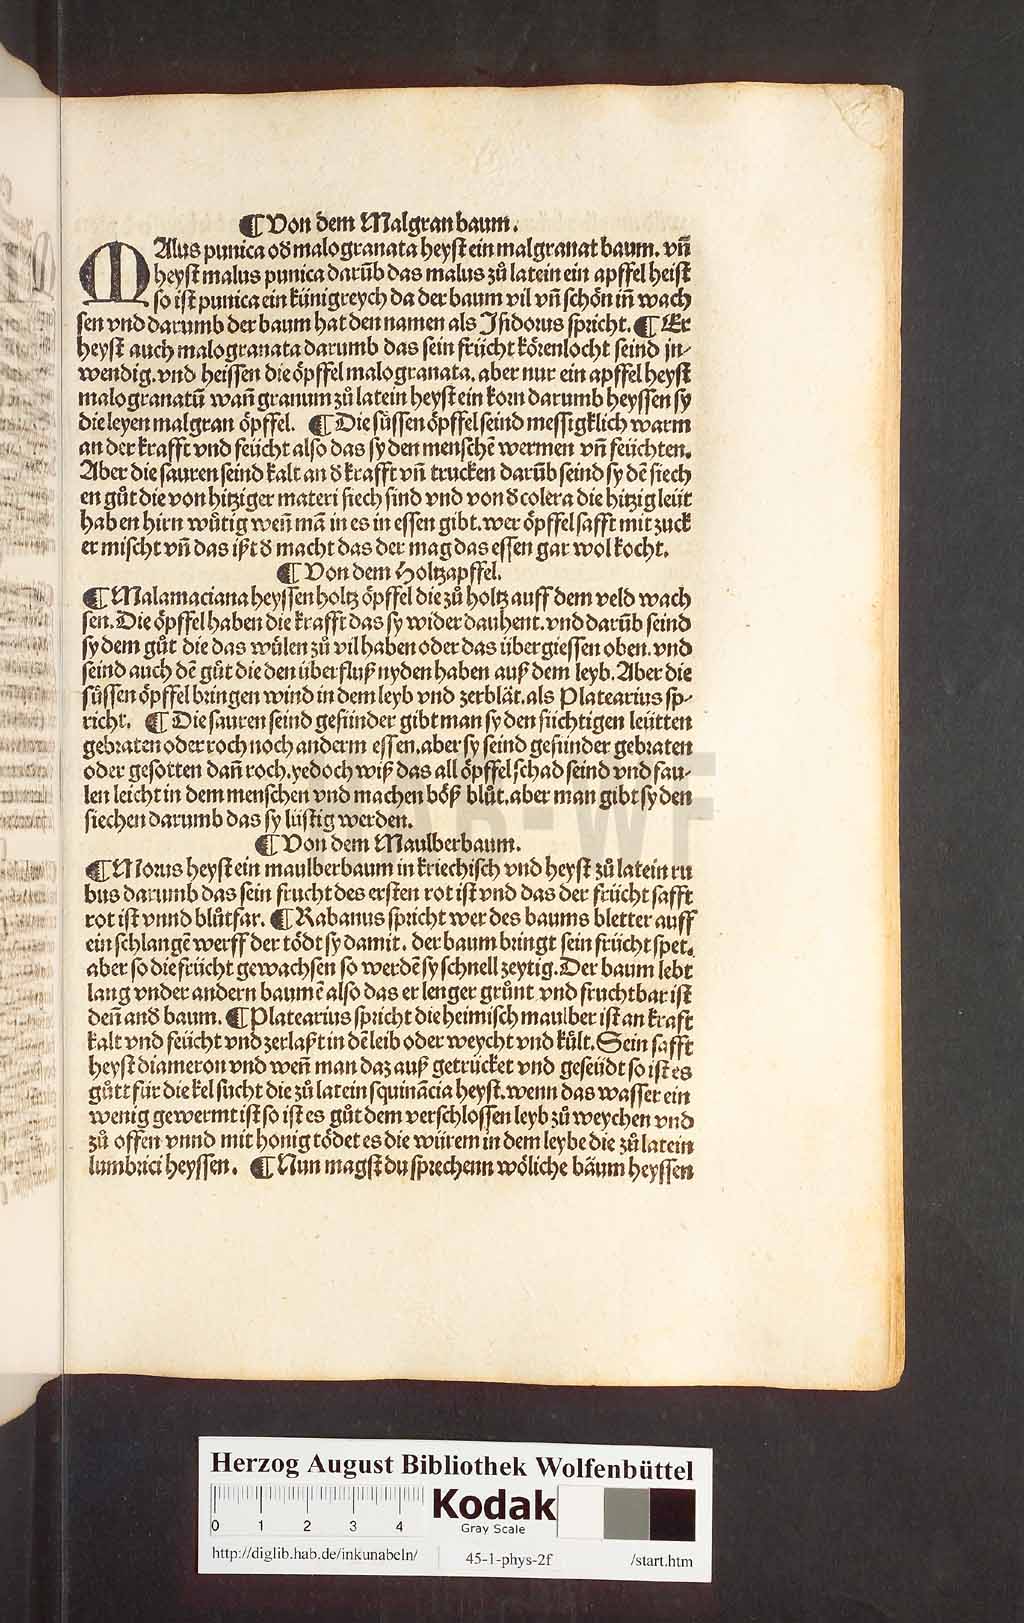 ¶ Von dem Malgran baum.
MAlus punica oď malogranata heyſt ein malgranat baum. vñ
heyſt malus punica darūb das malus zů latein ein apffel heiſt
ſo iſt punica ein künigreych da der baum vil vñ ſchön iñ wach
ſen vnd darumb der baum hat den namen als Iſidorus ſpricht. ¶ Er
heyſt auch malogranata darumb das ſein frücht körenlocht ſeind jn⸗
wendig. vnd heiſſen die öpffel malogranata. aber nur ein apffel heyſt
malogranatū wañ granum zů latein heyſt ein korn darumb heyſſen ſy
die leyen malgran öpffel. ¶ Die ſüſſen öpffel ſeind meſſigklich warm
an der krafft vnd feücht alſo das ſy den menſchē wermen vñ feüchten.
Aber die ſauren ſeind kalt an ď krafft vñ trucken darūb ſeind ſy dē ſiech
en gůt die von hitziger materi ſiech ſind vnd von ď colera die hitzig leüt
haben hirn wůtig weñ mā in es in eſſen gibt. wer öpffel ſafft mit zuck
er miſcht vñ das iſzt ď macht das der mag das eſſen gar wol kocht.
¶ Von dem Holtzapffel.
¶ Malamaciana heyſſen holtz öpffel die zů holtz auff dem veld wach
ſen. Die öpffel haben die krafft das ſy wider dauhent. vnd darūb ſeind
ſy dem gůt die das wülen zů vil haben oder das über gieſſen oben. vnd
ſeind auch dē gůt die den überfluſz nyden haben auſz dem leyb. Aber die
ſüſſen öpffel bringen wind in dem leyb vnd zerblät. als Platearius ſp⸗
richt. ¶ Die ſauren ſeind geſünder gibt man ſy den ſüchtigen leütten
gebraten oder roch noch anderm eſſen. aber ſy ſeind geſünder gebraten
oder geſotten dañ roch. yedoch wiſz das all öpffel ſchad ſeind vnd fau⸗
len leicht in dem menſchen vnd machen böſz blůt. aber man gibt ſy den
ſiechen darumb das ſy luſtig werden.
¶ Von dem Maulberbaum.
¶ Morus heyſt ein maulberbaum in kriechiſch vnd heyſt zů latein ru
bus darumb das ſein frucht des erſten rot iſt vnd das der frücht ſafft
rot iſt vnnd blůtfar. ¶ Rabanus ſpricht wer des baums bletter auff
ein ſchlangē werff der tödt ſy damit. der baum bringt ſein frücht ſpet.
aber ſo die frücht gewachſen ſo werdē ſy ſchnell zeytig. Der baum lebt
lang vnder andern baumē alſo das er lenger grůnt vnd fruchtbar iſt
deñ anď baum. ¶ Platearius ſpricht die heimiſch maulber iſt an kraft
kalt vnd feücht vnd zerlaſzt in dē leib oder weycht vnd kült. Sein ſafft
heyſt diameron vnd weñ man daz auſz getrücket vnd geſeüdt ſo iſt es
gůtt für die kel ſucht die zů latein ſquināncia heyſt. wenn das waſſer ein
wenig gewermt iſt ſo iſt es gůt dem verſchloſſen leyb zů weychen vnd
zů offen vnnd mit honig tödet es die würem in dem leybe die zů latein
lumbrici heyſſen. ¶ Nun magſt du ſprechenn wöliche bäum heyſſen
HAB-WF
Herzog August Bibliothek Wolfenbüttel
0 1 2 3 4
Kodak
Gray Scale
http://diglib.hab.de/inkunabeln/
45-1-phys-2f
/start.htm